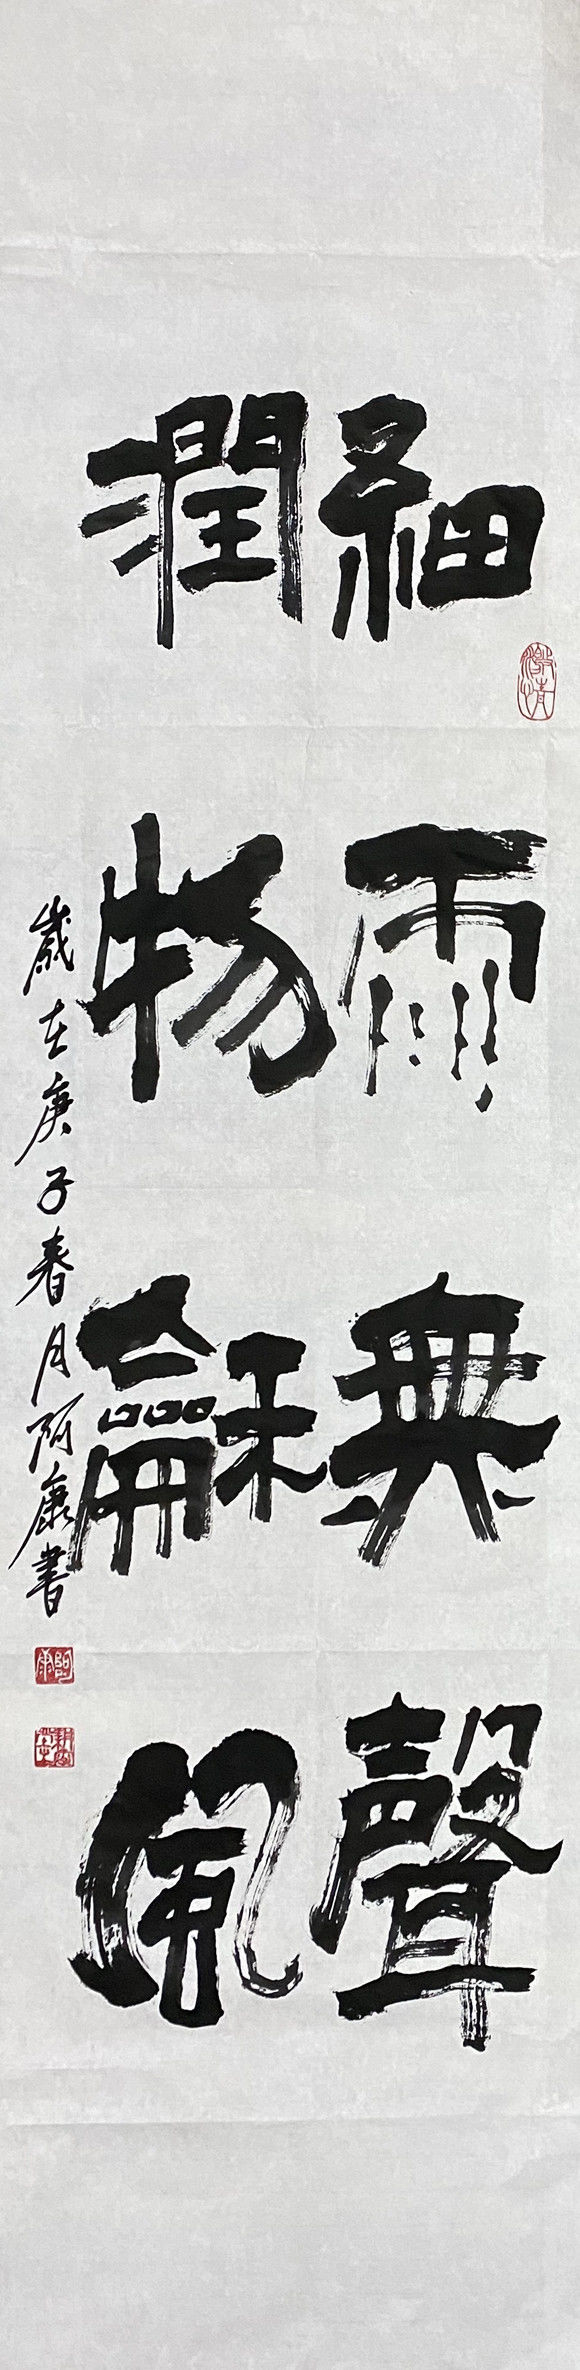 細雨無聲
潤物龢風
歲在庚子春月阿康書